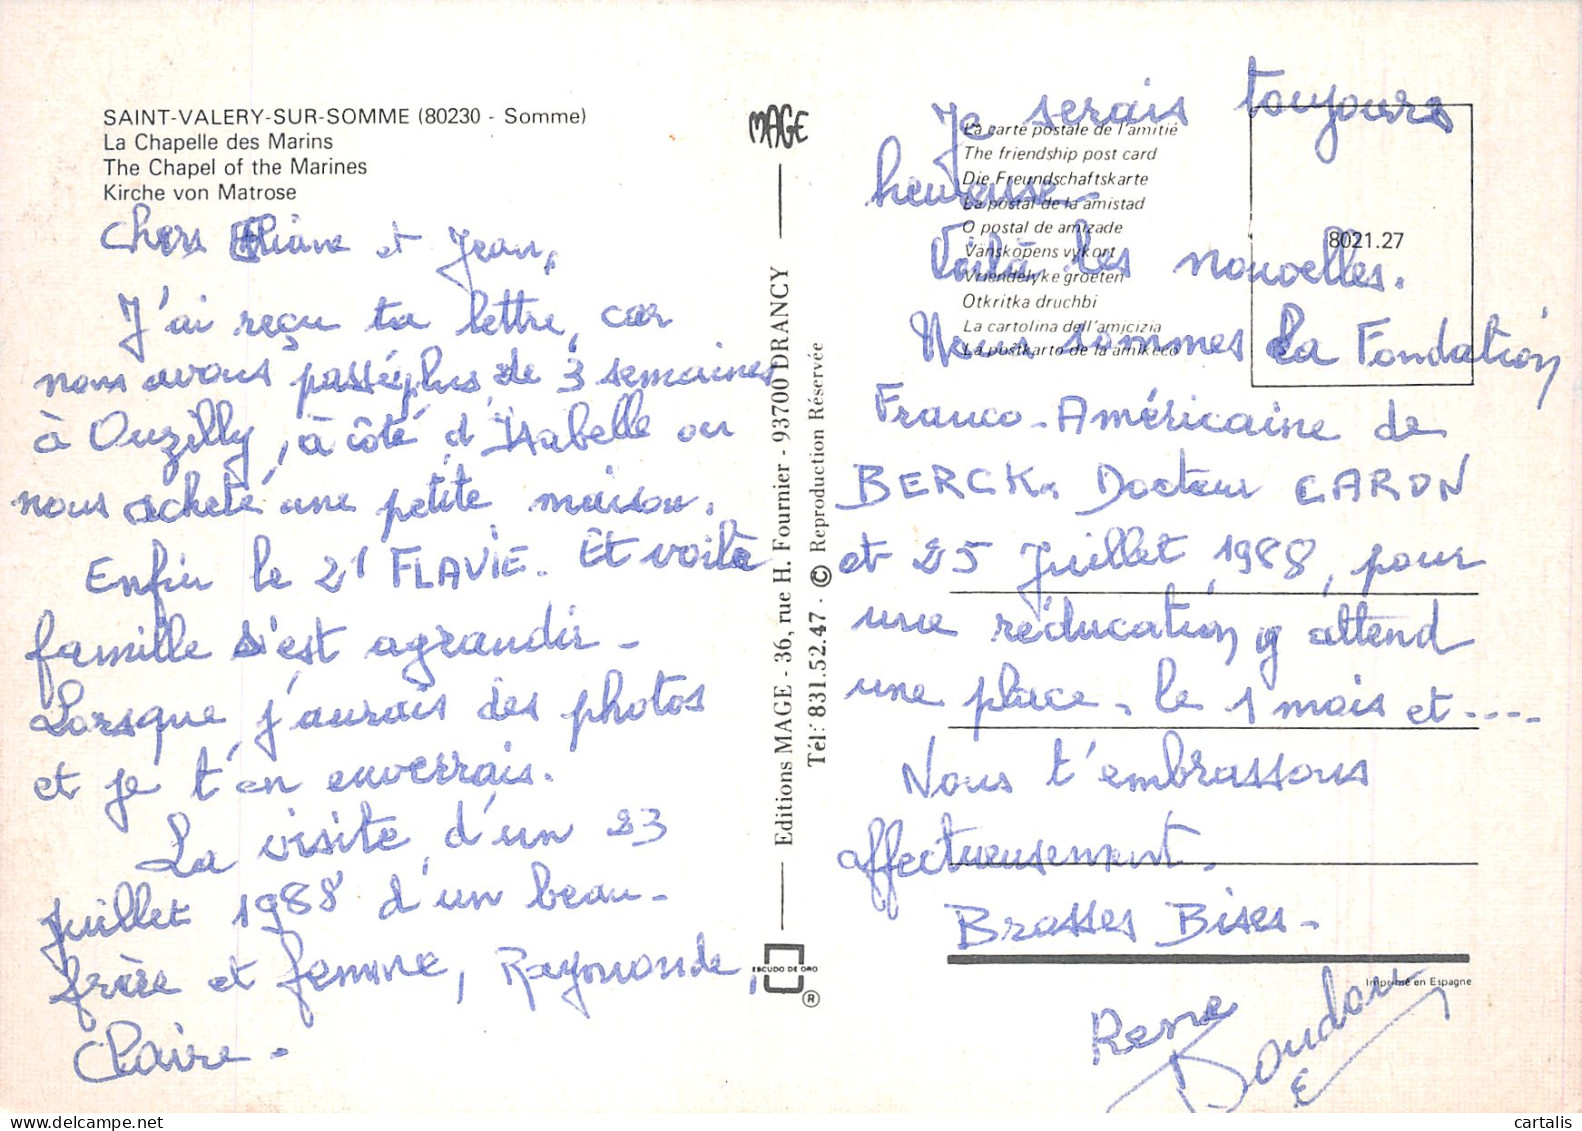 SAINT-VALERY-SUR-SOMME (80230 - Somme)
La Chapelle des Marins
The Chapel of the Marines
Kirche von Matrose
Chers Eliane et Jean,
J'ai reçu ta lettre, car
nous avous passé, plus de 3 semaines
à Ouzilly, à côté d'Isabelle ou
nous acheté une petite maison.
Enfin le 21 FLAVIE. Et voilà
famille s'est agrandir -
Lorsque j'aurais des photos
et je t'en enverrais.
La visite, d'un 23
Juillet 1988 d'un beau-
frère et femme, Raymonde,
Claire -
MAGE
Editions MAGE - 36, rue H. Fournier - 93700 DRANCY
Tél: 831.52.47 - © Reproduction Réservée
ESCUDO DE ORO
®
La carte postale de l'amitié
The friendship post card
Die Freundschaftskarte
La postal de la amistad
O postal de amizade
Vänskopens vykort
Vriendelyke groeten
Otkritka druchbi
La cartolina dell'amicizia
La postkarto de la amikeco
8021.27
Je serais toujours
heureuse -
Voilà les nouvelles.
Nous sommes la Fondation
Franco-Américaine de
BERCK. Docteur CARON
et 25 Juillet 1988, pour
une réducation, y attend
une place, le 1 mois et ----
Nous t'embrassous
affectueusement.
Brosses Bises -
Imprimé en Espagne
Rene